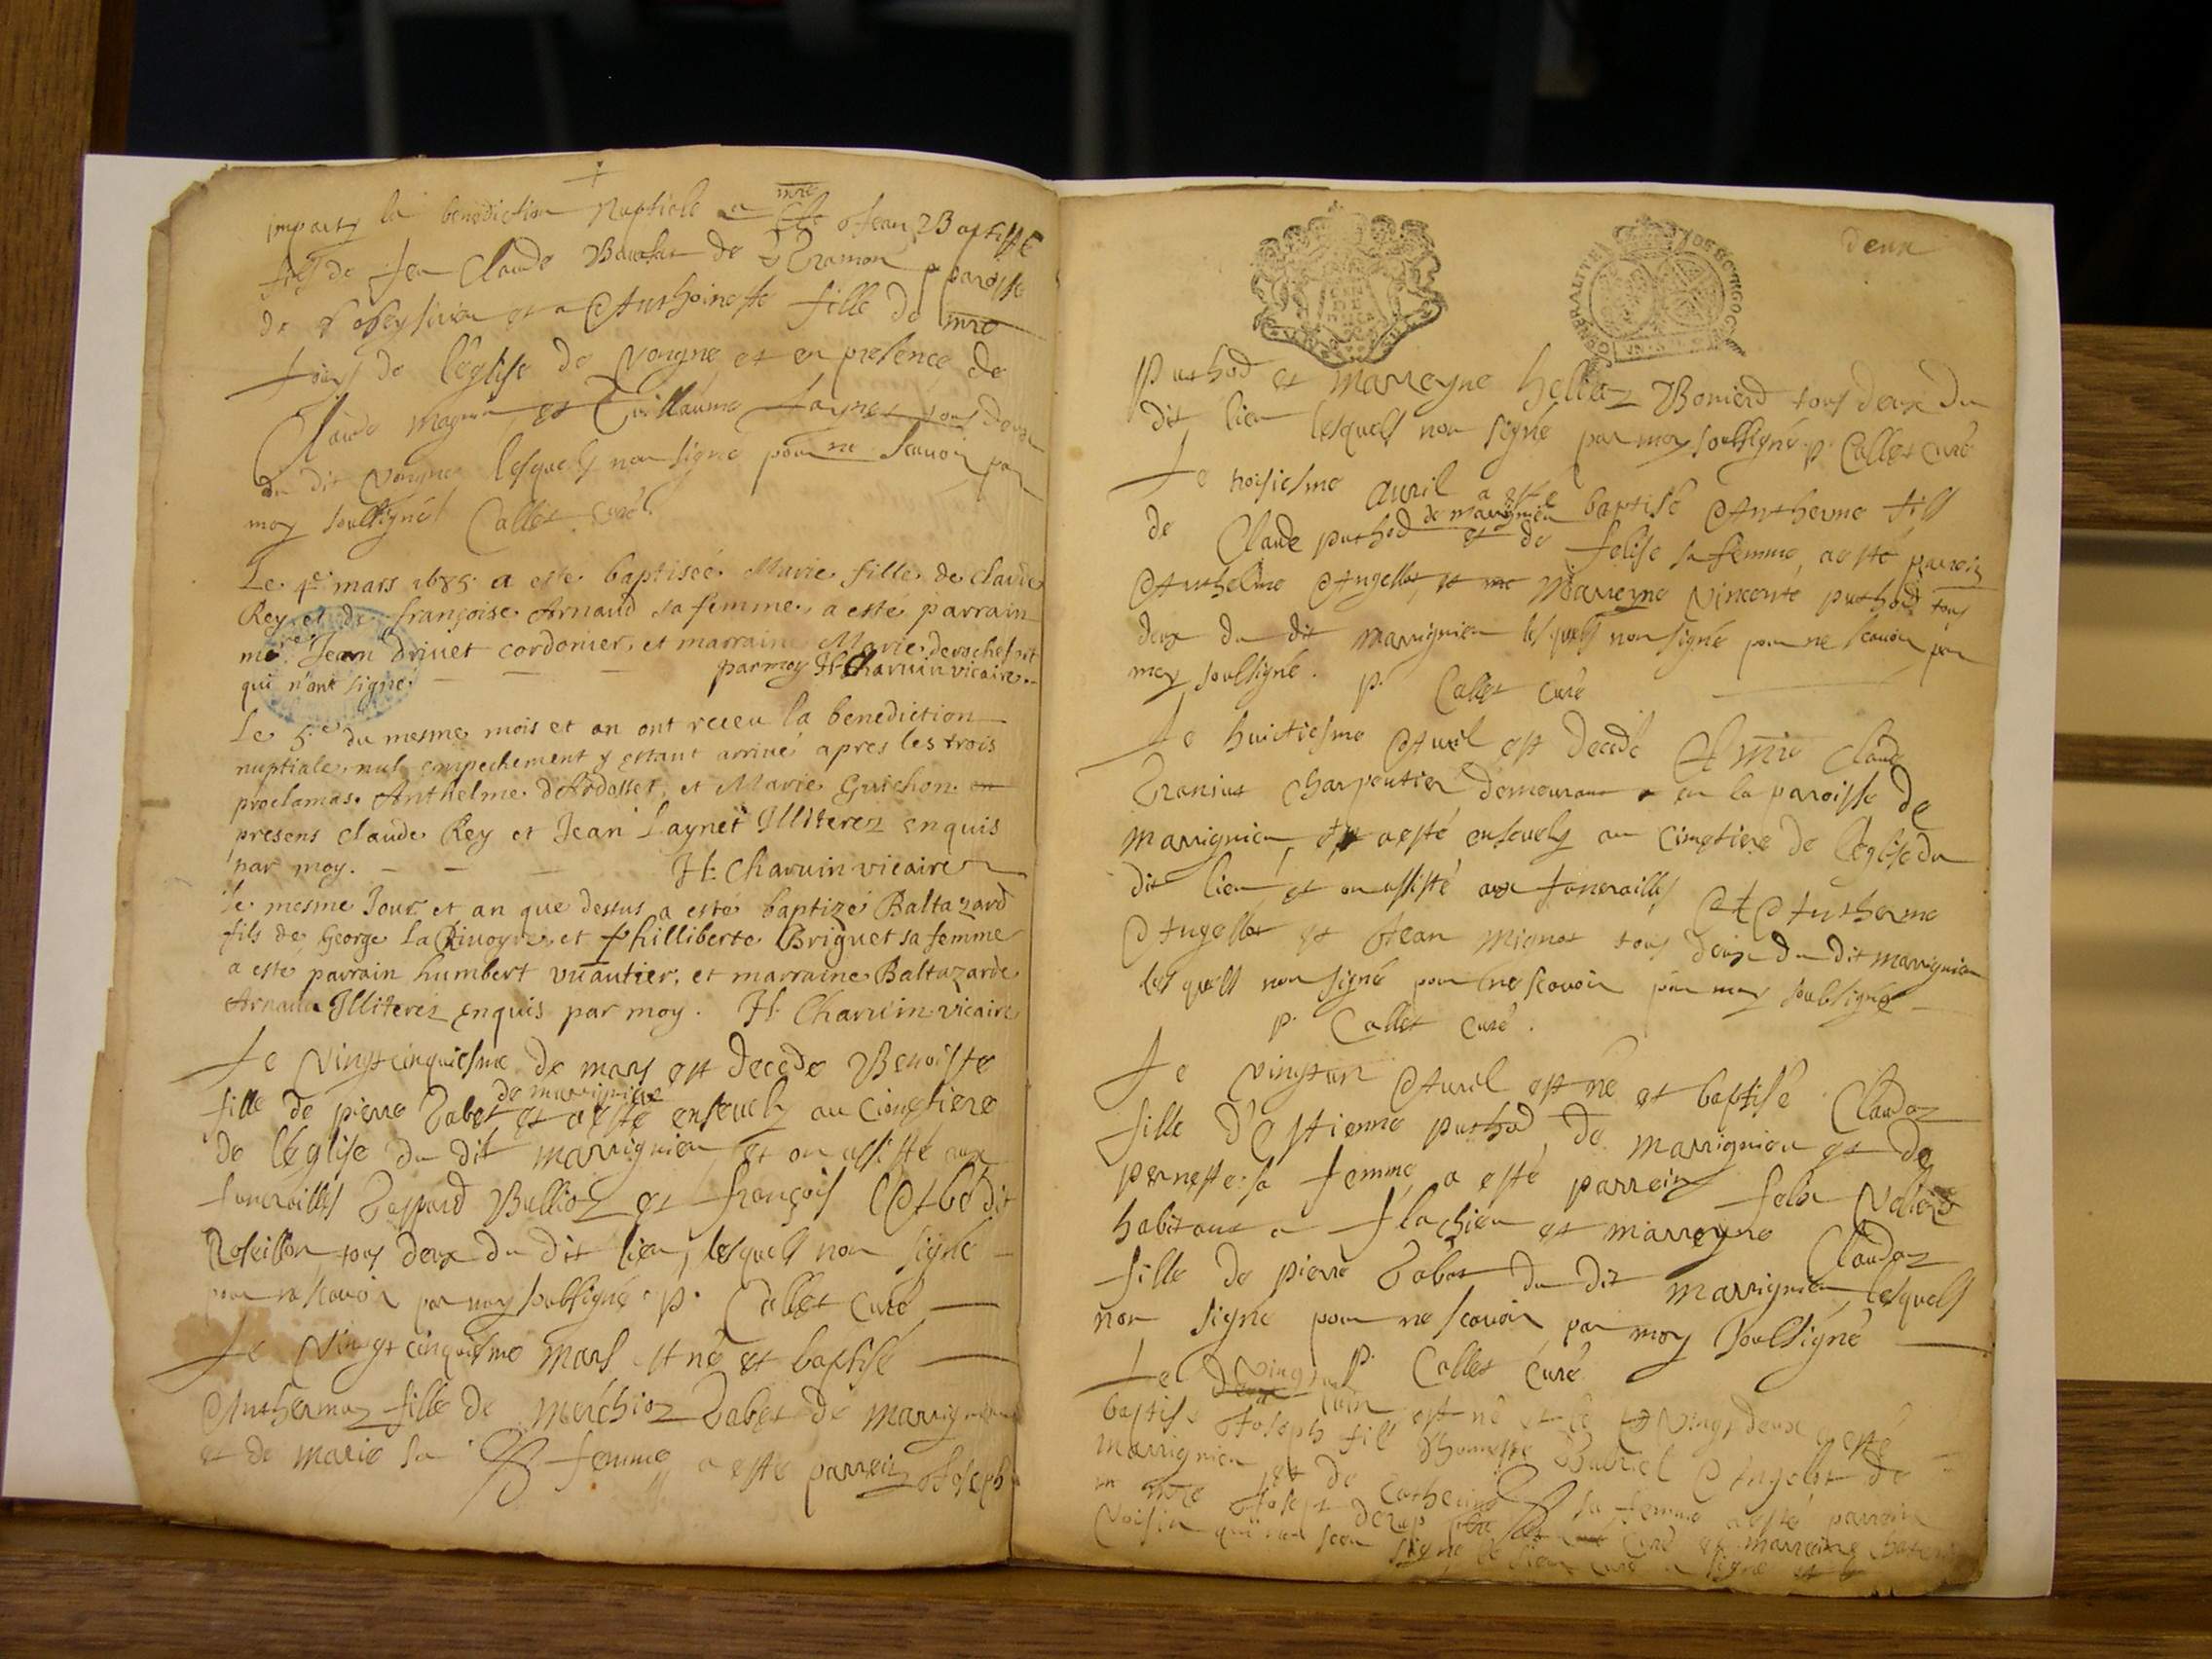 imparty la benediction Nuptiale a mre Jean Baptiste
fils de feu Claude de paroisse
de et a Anthoinette fille de mre
de l'eglise de Vongne et en presence de
Claude et Guillaume Laynet tous deux
du dit Vongne lesquels non signe pour ne scavoir par
moy soubsigné Collet curé.
Le 4e mars 1685 a este baptisée Marie fille de claude
Rey et de françoise Arnaud sa femme, a esté parrain
me Jean drivet cordonier, et marraine Marie
qui n'ont signé. par moy H Charvin vicaire.
Le 5e du mesme mois et an ont receu la benediction
nuptiale, nul empechement y estant arrivé apres les trois
proclamas. Anthelme d'Ardosset, et Marie Guichon en
presens claude Rey et Jean Laynet Illiterez enquis
par moy. H. Charvin vicaire
le mesme Jour et an que dessus a esté baptizé Baltazard
fils de George La Rivoyre, et philliberte Briguet sa femme
a esté parrain humbert vuautier, et marraine Baltazarde
Arnaud Illiterez enquis par moy. H. Charvin vicaire
Le vingt cinquiesme de mars est decede Benoiste
de marignieu
fille de pierre Tabet et a esté ensevely au cimetiere
de l'eglise du dit marrignieu et on assisté aux
funerailles Gaspard Bullioz et françois dit
Roseillon tous deux du dit lieu, lesquels non signé
pour ne scavoir par moy soubsigné p. Collet curé
Le vingt cinquiesme mars est né et baptisé
Anthermaz fille de Merchioz Tabet de marrignieu
et de marie sa femme a esté parrein Joseph
deux
GENERALITE DE BOURGOG
Puthod et marreyne Bonierd tous deux du
dit lieu lesquels non signé par moy soubsigné p. Collet curé
Le troisiesme avril a esté baptisé Antherme fils
de marrignieu
de Claude puthod et de felise sa femme, a esté parrein
Anthelme Angellot, et me Marreyne Vincente puthod tous
deux du dit marrignieu lesquels non signé pour ne scavoir par
moy soubsigné. p. Collet curé
Le huictiesme Avril est decedé Claude
charpentier demeurant en la paroisse de
marrignieu, et a esté ensevely au cimetiere de l'eglise du
dit lieu et on assisté aux funerailles Antherme
Angellot et Jean Mignot tous deux du dit marrignieu
lesquels non signé pour ne scavoir par moy soubsigné
p. Collet curé.
Le vingt un Avril est né et baptisé Claudaz
fille d'Estienne puthod, de marrignieu et de
pernette sa femme, a esté parrein felix
habitant a flachieu et marreyne Claudaz
fille de pierre Tabet du dit marrignieu, lesquels
non signé pour ne scavoir par moy soubsigné
p. Collet curé
Le vingt juin est né et le vingt deux a esté
baptisé Joseph fils d'honneste Gabriel Angelot de
marrignieu et de Catherine sa femme a esté parrein
mre Joseph curé et marreine
signé le sieur curé a signé